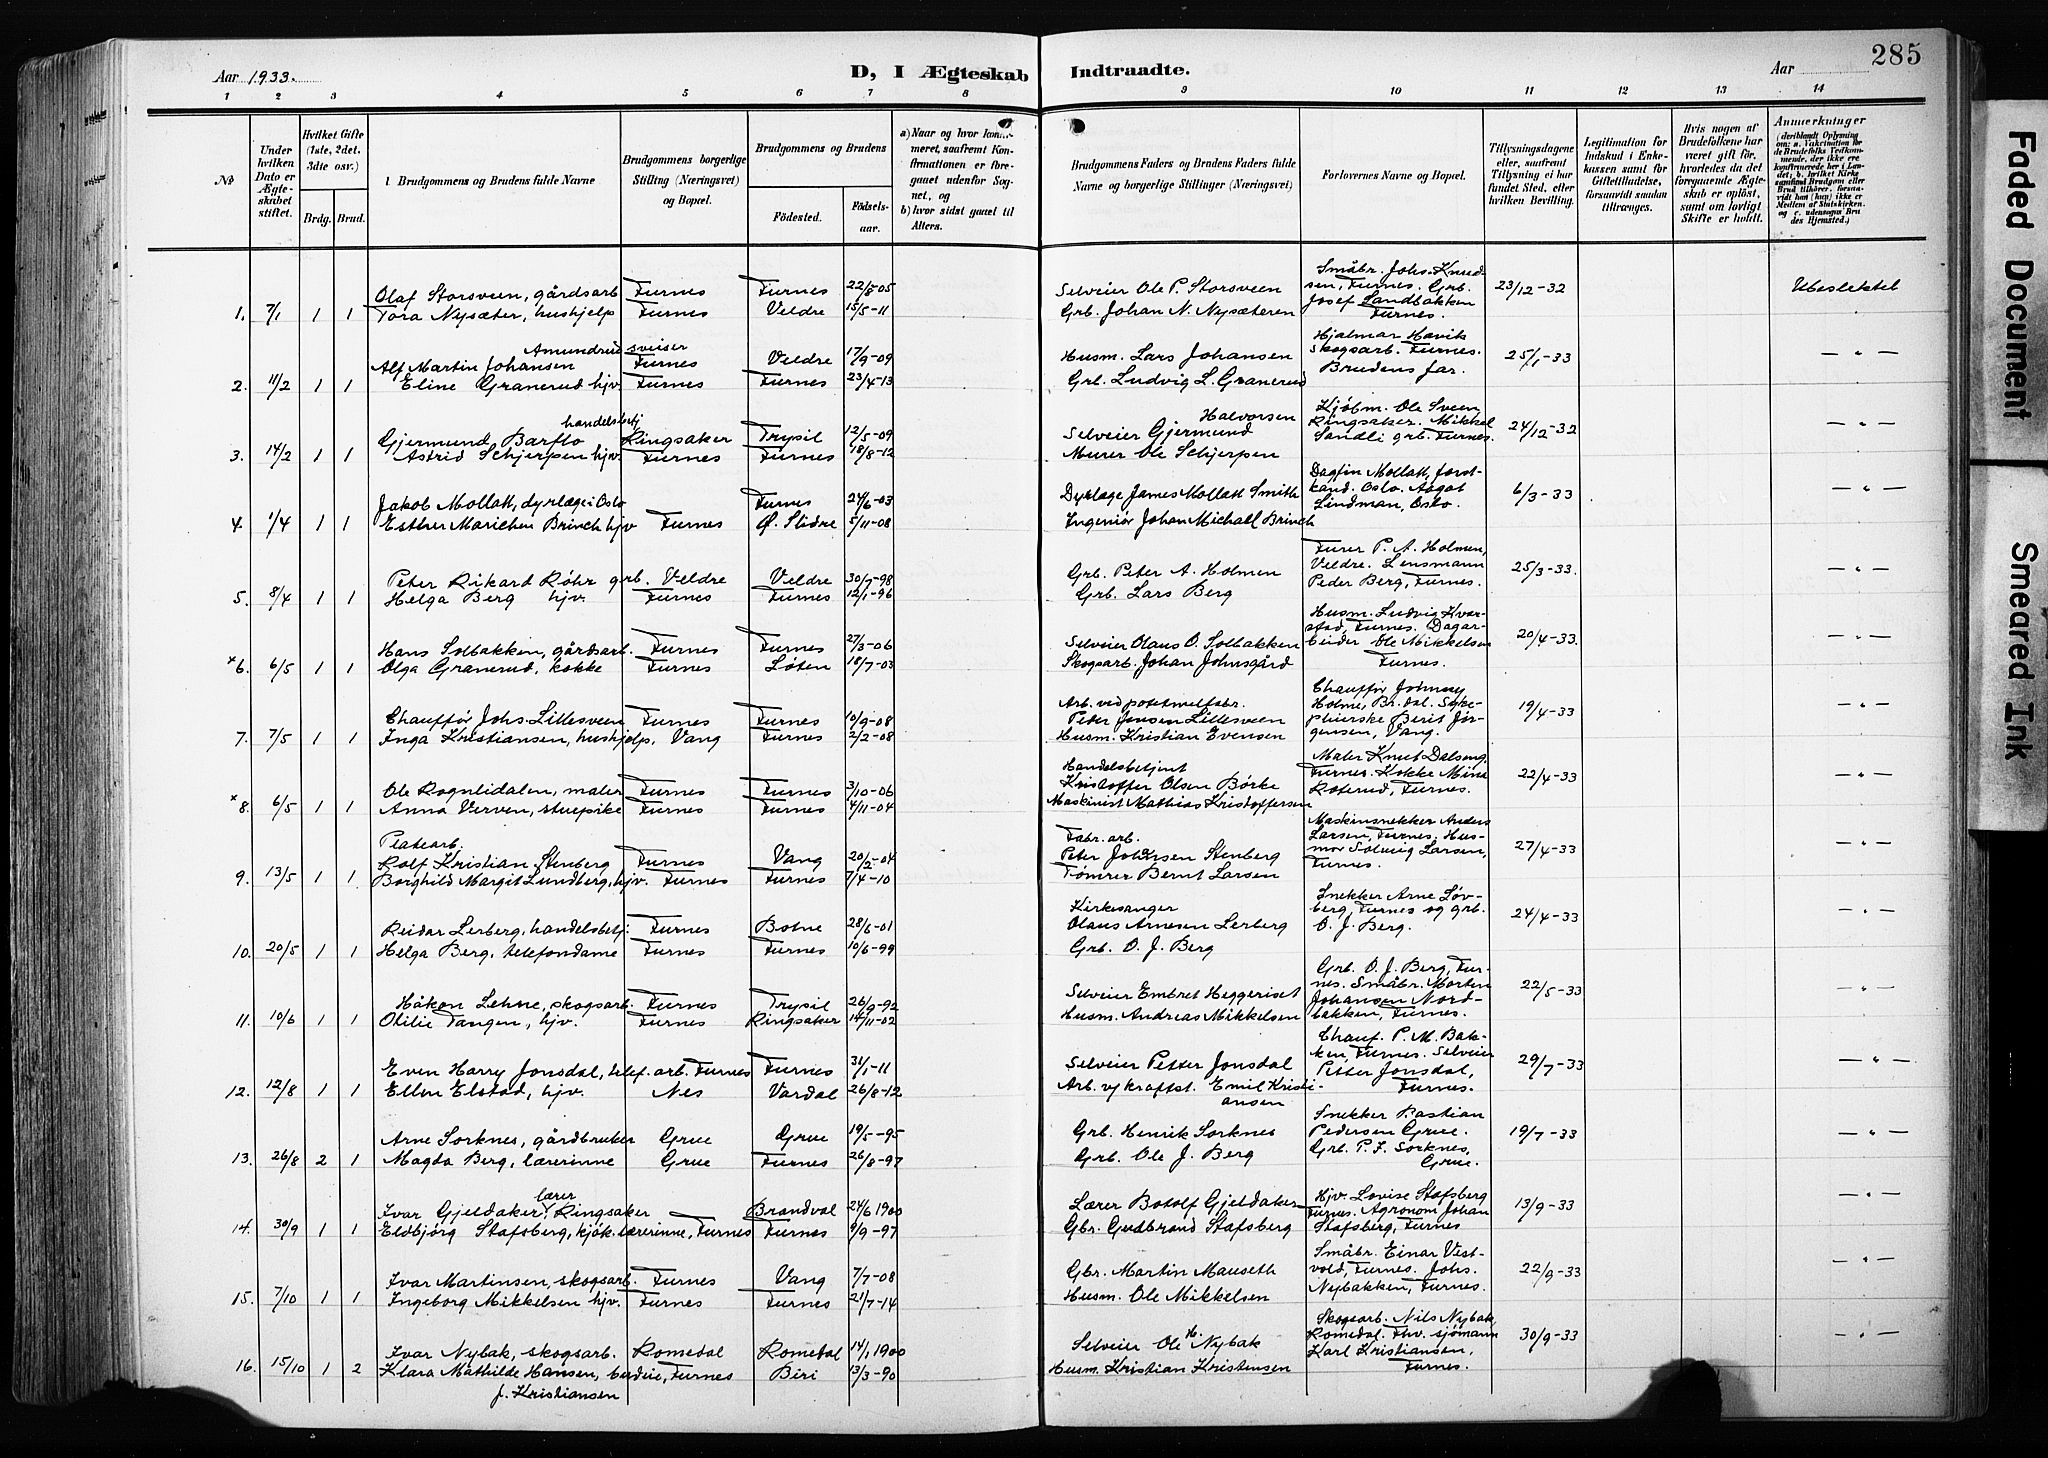 Aar 1933.
D, I Ægteskab
Indtraadte.
Aar
285
1 2 3 4 5 6 7 8 9 10 11 12 13 14
No
Under hvilken Dato er Ægteskabet stiftet.
Hvilket Gifte (1ste, 2det, 3die osv.)
Brdg. Brud.
Brudgommens og Brudens fulde Navne
Brudgommens borgerlige Stilling (Næringsvei) og Bopæl.
Brudgommens og Brudens
Födested.
Födselsaar.
a) Naar og hvor konfirmeret, saafremt Konfirmationen er foregaaet udenfor Sognet, og
b) hvor sidst gaaet til Alters.
Brudgommens Faders og Brudens Faders fulde Navne og borgerlige Stillinger (Næringsvei)
Forlovernes Navne og Bopæl.
Tillysningsdagene eller, saafremt Tillysning ei har fundet Sted, efter hvilken Bevilling.
Legitimation for Indskud i Enkekassen samt for Giftetilladelse, forsaavidt saadan tiltrænges.
Hvis nogen af Brudefolkene har været gift för, hvorledes da det foregaaende Ægteskab er oplöst, samt om lovligt Skifte er holdt.
Anmerkninger
(deriblandt Oplysning om: a. Vaccination for de Brudefolks Vedkommende, der ikke ere konfirmerede her i Landet; b. hvilket Kirkesamfund Brudgom eller Brud tilhörer, forsaavidt han (hun) ikke er Medlem af Statskirken, og c. udensogns Brudes Hjemsted.)
1. 7/1 1 1 Olaf Storsveen, gårdsarb Furnes Furnes 22/8-05 Selveier Ole P. Storsveen Småbr. Johs. Knudsen, Furnes. Grb. Josef Landbakken Furnes. 23/12-32 Ubeslektet
Tora Nysæter, hushjelp Furnes Veldre 15/5-11 Grb. Johan N. Nysæteren
2. 11/2 1 1 Alf Martin Johansen Amundrud sveiser Furnes Veldre 17/9-09 Husm. Lars Johansen Hjalmar Havik skogsarb. Furnes. Brudens far. 25/1-33 — " —
Eline Granerud hjv. Furnes Furnes 23/4-13 Grb. Ludvig L. Granerud
3. 14/2 1 1 Gjermund Barflo handelsbetj Ringsaker Trysil 12/5-09 Selveier Gjermund Halvorsen Kjøbm. Ole Sveen Ringsaker. Mikkel Sandli grb. Furnes. 24/12-32 — " —
Astrid Schjerpen hjv. Furnes Furnes 18/8-12 Murer Ole Schjerpen
4. 1/4 1 1 Jakob Mollatt, dyrlæge i Oslo Furnes 24/6-03 Dyrlæge James Mollatt Smith Dagfin Mollatt, forstkand. Oslo. Aagot Lindman, Oslo. 6/3-33 — " —
Esther Marichen Brinch hjv Furnes Ø. Slidre 5/11-08 Ingeniør Johan Michall Brinch
5. 8/4 1 1 Peter Rikard Røhr grb. Veldre Veldre 30/7-98 Grb. Peter A. Holmen Furer P. A. Holmen, Veldre. Lensmann Peder Berg, Furnes. 25/3-33. — " —
Helga Berg hjv. Furnes Furnes 12/1-96 Grb. Lars Berg
×6. 6/5 1 1 Hans Solbakken, gårdsarb. Furnes Furnes 27/3-06 Selveier Olaus O. Solbakken Husm. Ludvig Kvarstad, Furnes. Dagarbeider Ole Mikkelsen Furnes. 20/4-33. — " —
Olga Granerud, kokke Furnes Løten 18/7-03 Skogsarb. Johan Johnsgård
7. 7/5 1 1 Chauffør Johs. Lillesveen Furnes Furnes 10/9-08 Arb. ved potetmelfabr. Peder Jensen Lillesveen Chauffør Johnny Holme, Br.dal. Sykepleierske Berit Jørgensen, Vang. 19/4-33 — " —
Inga Kristiansen, hushjelp, Vang Furnes 2/2-08 Husm. Kristian Evensen
×8. 6/5 1 1 Ole Rognlidalen, maler Furnes Furnes 3/10-06 Handelsbetjent Kristoffer Olsen Børke Maler Knut Delsing Furnes. Kokke Mina Roterud, Furnes. 22/4-33 — " —
Anna Verven, stuepike Furnes Furnes 4/11-04 Maskinist Mathias Kristoffersen
9. 13/5 1 1 Platearb. Rolf Kristian Stenberg Furnes Vang 20/2-04 Fabr. arb. Peter Johansen Stenberg Maskinsnekker Anders Larsen, Furnes. Husmor Solveig Larsen, Furnes. 27/4-33 — " —
Borghild Margit Lundberg, hjv. Furnes Furnes 7/4-10 Tømrer Bernt Larsen
10. 20/5 1 1 Reidar Lerberg, handelsbetj. Furnes Botne 28/6-01 Kirkesanger Olaus Arnesen Lerberg Snekker Arne Løvberg, Furnes og grb. O. J. Berg. 24/4-33 — " —
Helga Berg, telefondame Furnes Furnes 10/6-99 Grb. O. J. Berg
11. 10/6 1 1 Håkon Lehne, skogsarb. Furnes Trysil 26/9-92 Selveier Embret Heggeriset Grb. O. J. Berg, Furnes. Småbr. Morten Johansen Nordbakken, Furnes. 22/5-33 — " —
Otilie Tangen, hjv. Furnes Ringsaker 14/11-02 Husm. Andreas Mikkelsen
12. 12/8 1 1 Even Harry Jonsdal, telef. arb. Furnes Furnes 31/1-11 Selveier Petter Jonsdal Chauf. P. M. Bakken, Furnes. Selveier Petter Jonsdal, Furnes. 29/7-33 — " —
Ellen Elstad, hjv. Nes Vardal 26/8-12 Arb. v/ kraftst. Emil Kristiansen
13. 26/8 2 1 Arne Sorknes, gårdbruker Grue Grue 19/5-95 Grb. Henrik Sorknes Snekker Bastian Pedersen Grue. Grb. P. F. Sorknes, Grue. 19/7-33 — " —
Magda Berg, lærerinne Grue Furnes 26/8-97 Grb. Ole J. Berg
14. 30/9 1 1 Ivar Gjeldaker, lærer Ringsaker Brandval 24/6 1900 Lærer Botolf Gjeldaker Hjv. Lovise Stafsberg Furnes. Agronom Johan Stafsberg, Furnes 13/9-33 — " —
Eldbjørg Stafsberg, kjøk. lærerinne, Furnes Furnes 9/9-97 Gbr. Gudbrand Stafsberg
15. 7/10 1 1 Ivar Martinsen, skogsarb. Furnes Vang 7/7-08 Gbr. Martin Mauseth Småbr. Einar Vestvold, Furnes. Johs. Nybakken, Furnes. 22/9-33 — " —
Ingeborg Mikkelsen hjv. Furnes Furnes 21/7-14 Husm. Ole Mikkelsen
16. 15/10 1 2 Ivar Nybak, skogsarb. Romedal Romedal 14/1 1900 Selveier Ole H. Nybak Skogsarb. Nils Nybak, Romedal. Fhv. sjømann Karl Kristiansen, Furnes. 30/9-33 — " —
Klara Mathilde Hansen, budeie, Furnes Biri 13/3-90 Husm. Kristian Kristensen
f. Kristiansen
Faded Document
Smeared Ink